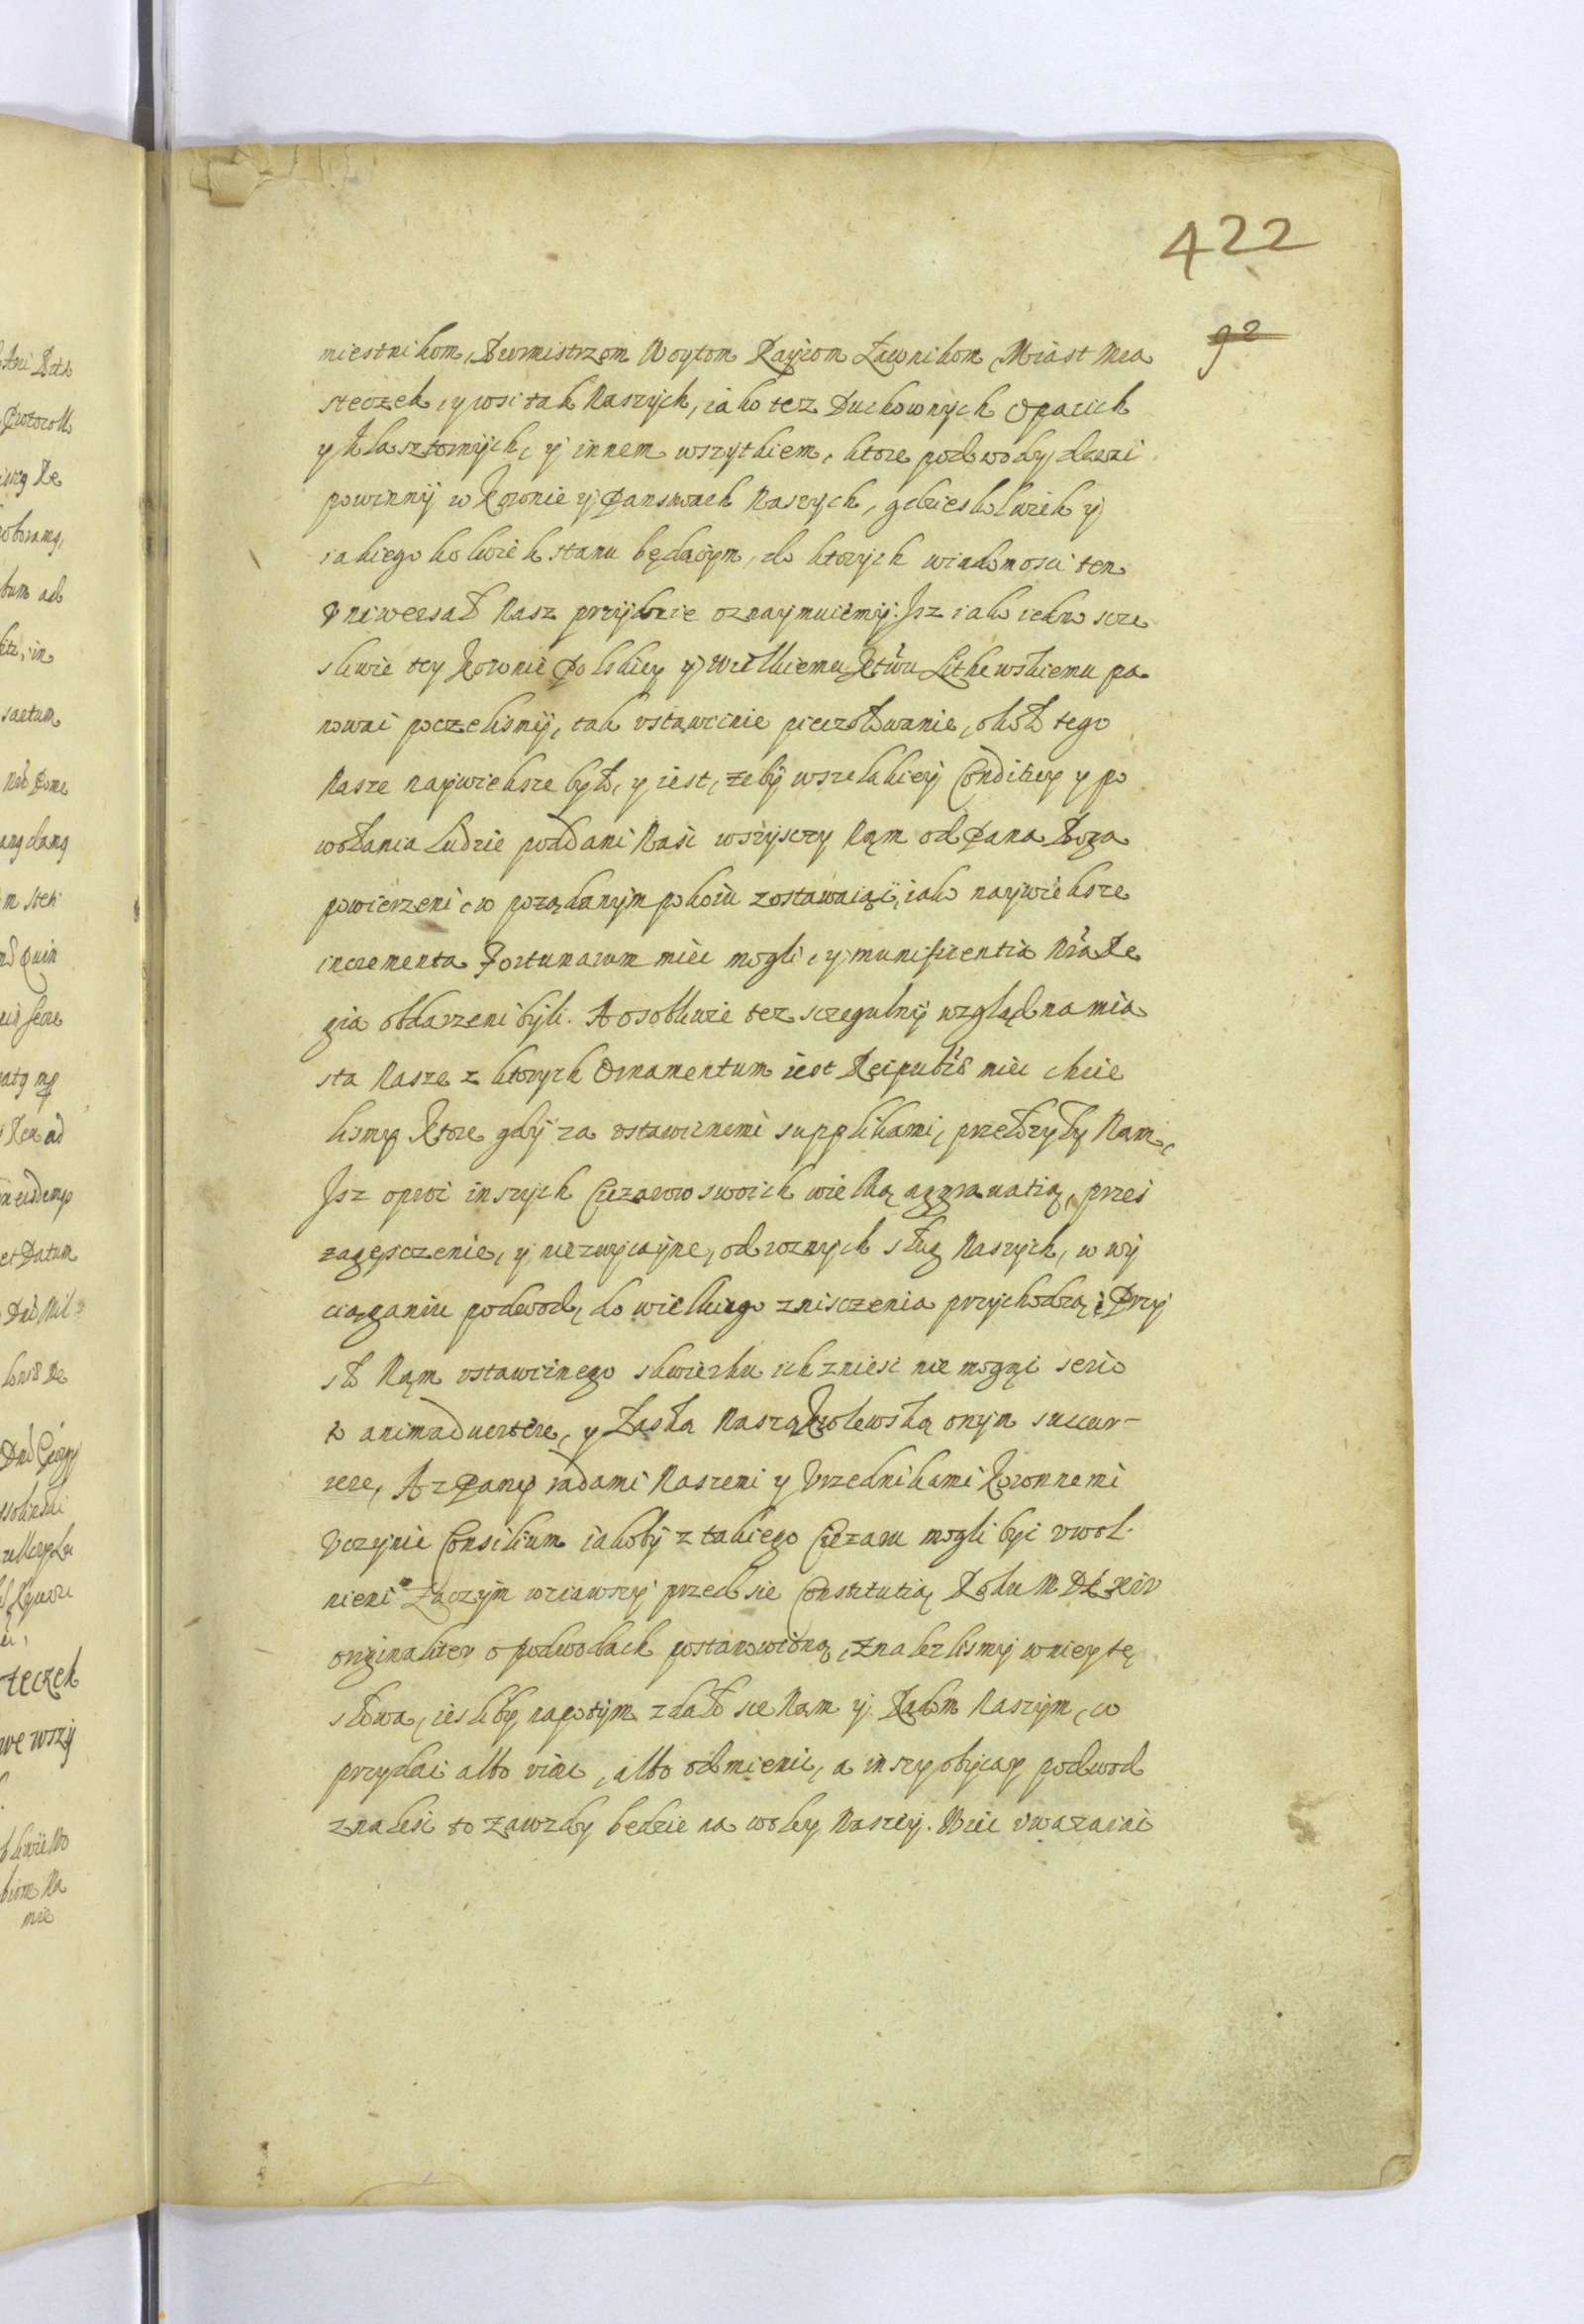 422
92
miestnikom, Burmistrzom Woytom Raycom Ławnikom, Miast Mia
steczek, y wsi tak Naszych, iako tez Duchownych Opacich
y Klasztornych, y innem wszytkiem, ktore podwody dawai
powinny w Koronie y Panstwach Naszych, gdzieskolwiek y
iakiego kolwiek stanu będącym, do ktorych wiadomosci ten
Vniwersał Nasz przydzie oznaymuiemy. Jsz iako iedno scze
sliwie tey Koronie Polskiey y Wielkiemu Xtwu Lithewskiemu pa
nowai poczelismy, tak vstawicnie pieczołowanie, około tego
Nasze naywieksze było, y iest, zeby wszelakiey Conditiey y po
wołania Ludzie poddani Nasi wszysczy Nąm od Pana Boga
powierzeni, w poządanym pokoiu zostawaiąc, iako naywieksze
incrementa Fortunarum miec mogli, y munificentia Nra Re
gia obdarzeni byli. A osobliwie tez sczegulny wzgląd na mia
sta Nasze z ktorych Ornamentum iest Reipublis miec chcie
lismy Ktore gdy za vstawicznemi supplikami, przełozyły Nam,
Jsz oproc inszych Ciezarow swoich wielką aggrauatią, przes
zagęsczenie, y niezwycayne, od roznych sług Naszych, w wy
ciąganiu podwod, do wielkiego znisczenia przychodzą, Przy
sło Nąm vstawicnego skwierku ich zniesc nie mogąc serio
to animaduertere, y Łaską Naszą Krolewską onym succur-
rere, A z Pany radami Naszemi y Vrzednikami Koronnemi
Vczynic Consilium iakoby z takiego Ciezaru mogli byc vwol
nieni Zaczym wziawszy przed sie Constitutią Roku MDLXIV
originaliter o podwodach postanowioną, znalezlismy w niey tę
słowa, iesliby napotym zdało sie Nam y Radom Naszym, co
przydac albo viąc, albo odmienic, a inszy obycay podwod
znalesc to zawzdy bedzie na woley Naszey. Wiec vwazaiac